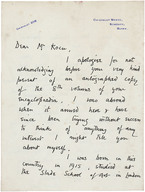 Dear Mr Rosen
I apologize for not
acknowledging before your very kind
present of an autographed copy
of the 5th volume of your
encyclopaedia. I was abroad
when it arrived here & have
since been trying without success
to think of anything of any
interest I might tell you
about myself.
I was born in this
country in 1915 student at
the Slade School of Art in London